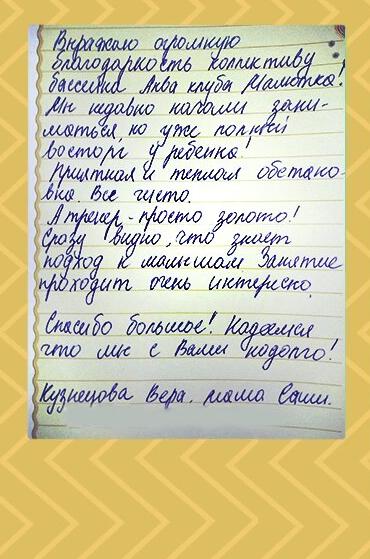 Выражаю огромную
благодарность коллективу
бассейна Аква клуба Мамотка!
Мы недавно начали зани-
маться, но уже полный
восторг у ребенка!
Приятная и теплая обстано-
вка. Все чисто.
А тренер - просто золото!
Сразу видно, что знает
подход к малышам. Занятие
проходит очень интересно.
Спасибо большое! Надеемся
что мы с Вами надолго!
Кузнецова Вера, мама Саши.